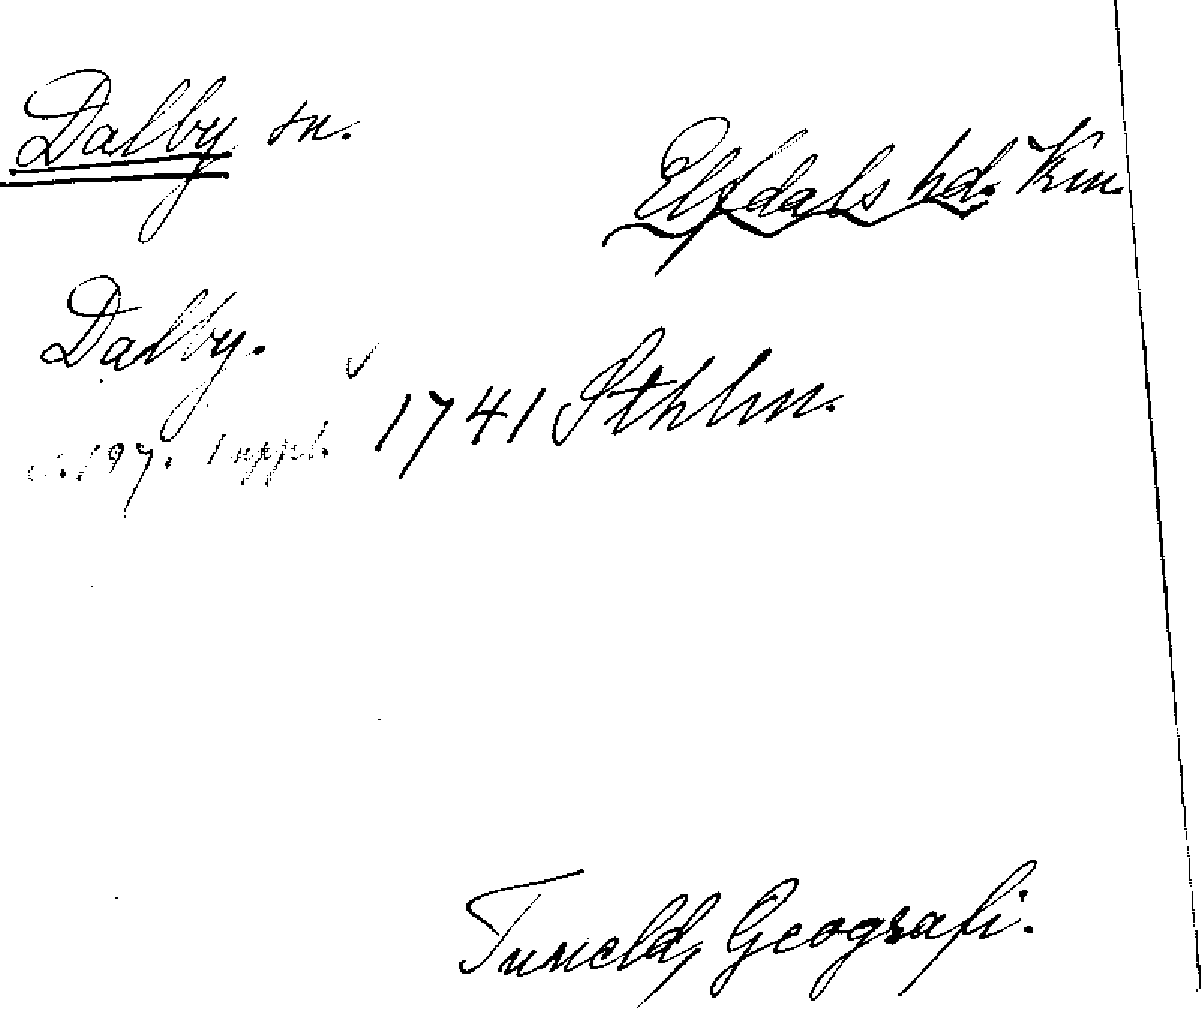 Dalby sn.
Elfdals hd. Vrm.
Dalby.
s. 197. 1 uppl. 1741 Sthlm.
Tuneld, Geografi.